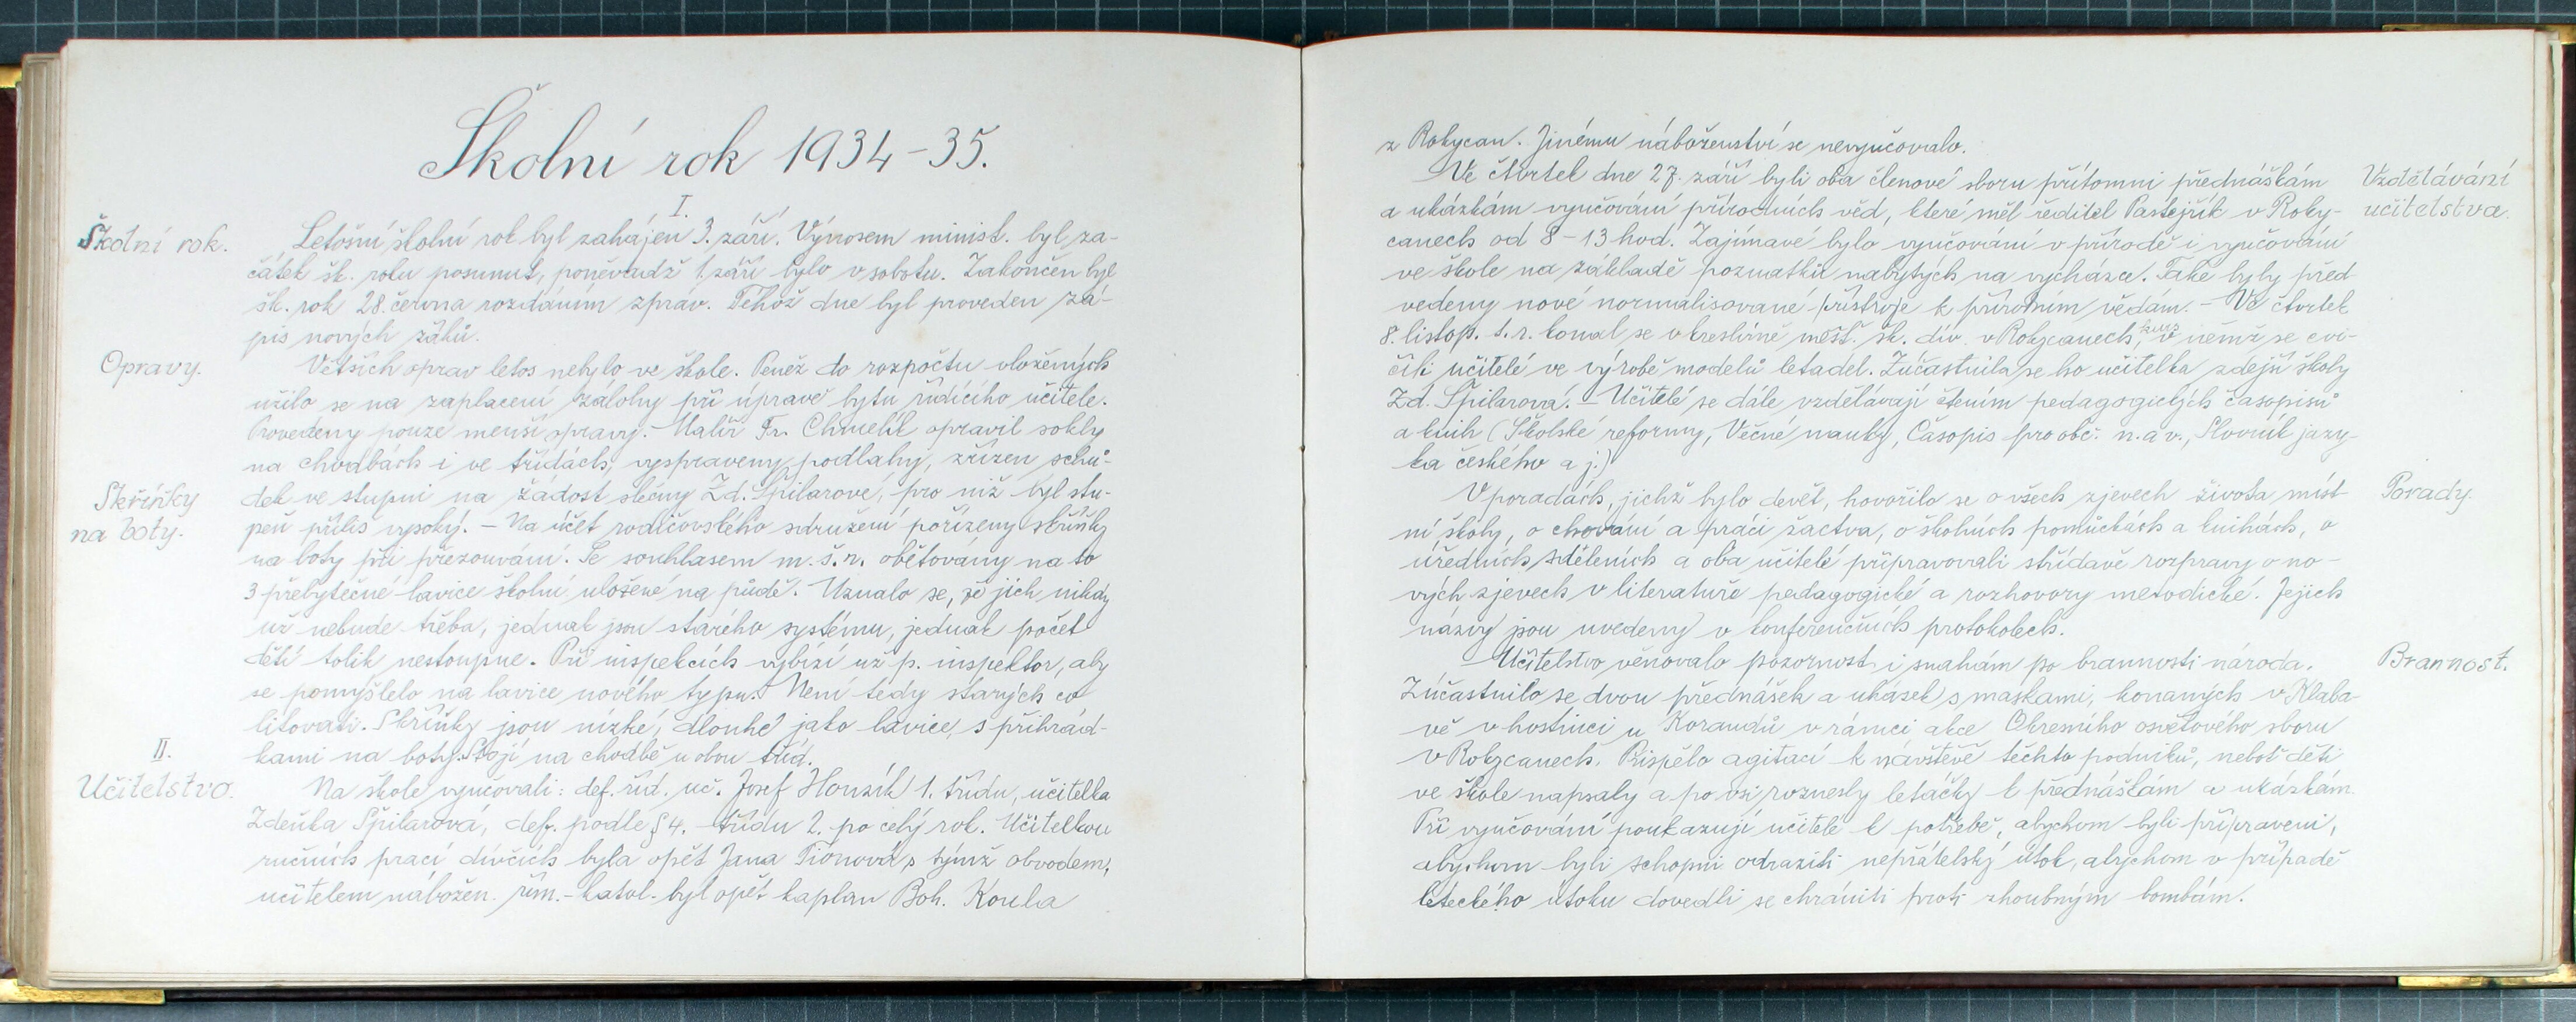 Školní rok 1934-35.
I.
Školní rok.
Letošní školní rok byl zahájen 3. září. Výnosem minist. byl za-
čátek šk. roku posunut, poněvadž 1. září bylo v sobotu. Zakončen byl
šk. rok 28. června rozdáním zpráv. Téhož dne byl proveden zá-
pis nových žáků.
Opravy.
Větších oprav letos nebylo ve škole. Peněz do rozpočtu vložených
užilo se na zaplacení zálohy při úpravě bytu řídícího učitele.
Provedeny pouze menší opravy. - Malíř Fr. Chmelík opravil sokly
na chodbách i ve třídách, vyspraveny podlahy, zřízen schů-
Skřínky
na boty.
dek ve stupni na žádost slečny Zd. Špilarové, pro niž byl stu-
peň příliš vysoký. - Na účet rodičovského sdružení pořízeny skřínky
na boty při přezouvání. Se souhlasem m. š. r. obětovány na to
3 přebytečné lavice školní uložené na půdě. Uznalo se, že jich nikdy
už nebude třeba, jednak jsou starého systému, jednak počet
dětí tolik nestoupne. Při inspekcích vybízí už p. inspektor, aby
se pomýšlelo na lavice nového typu. Není tedy starých co
litovati. Skřínky jsou nízké, dlouhé jako lavice, s přihrád-
kami na boty. Stojí na chodbě u obou tříd.
II.
Učitelstvo.
Na škole vyučovali: def. říd. uč. Josef Honzík 1. třídu, učitelka
Zdeňka Špilarová, def. podle § 4. - třídu 2. po celý rok. Učitelkou
ručních prací dívčích byla opět Jana Tiónová s týmž obvodem,
učitelem nábožen. řím.-katol. byl opět kaplan Boh. Koula
z Rokycan. Jinému náboženství se nevyučovalo.
Vzdělávání
učitelstva.
Ve čtvrtek dne 27. září byli oba členové sboru přítomni přednáškám
a ukázkám vyučování přírodních věd, které měl ředitel Pastejřík v Roky-
canech od 8-13 hod. Zajímavé bylo vyučování v přírodě i vyučování
ve škole na základě poznatků nabytých na vycházce. Také byly před-
vedeny nové normalisované přístroje k přírodním vědám. - Ve čtvrtek
8. listop. t. r. konal se v kreslírně měšť. šk. dív. v Rokycanech kurz, v němž se cvi-
čili učitelé ve výrobě modelů letadel. Zúčastnila se ho učitelka zdejší školy
Zd. Špilarová. - Učitelé se dále vzdělávají čtením pedagogických časopisů
a knih (Školské reformy, Věcné nauky, Časopis pro obč. n. a v., Slovník jazy-
ka českého a j.)
Porady.
V poradách, jichž bylo devět, hovořilo se o všech zjevech života míst-
ní školy, o chování a práci žactva, o školních pomůckách a knihách, o
úředních sděleních a oba učitelé připravovali střídavě rozpravy o no-
vých zjevech v literatuře pedagogické a rozhovory metodické. Jejich
názvy jsou uvedeny v konferenčních protokolech.
Brannost.
Učitelstvo věnovalo pozornost i snahám po brannosti národa.
Zúčastnilo se dvou přednášek a ukázek s maskami, konaných v Klaba-
vě v hostinci u Korandů v rámci akce Okresního osvětového sboru
v Rokycanech. Přispělo agitací k návštěvě těchto podniků, neboť děti
ve škole napsaly a po vsi roznesly letáčky k přednáškám a ukázkám.
Při vyučování poukazují učitelé k potřebě, abychom byli připraveni,
abychom byli schopni odraziti nepřátelský útok, abychom v případě
leteckého útoku dovedli se chrániti proti zhoubným bombám.